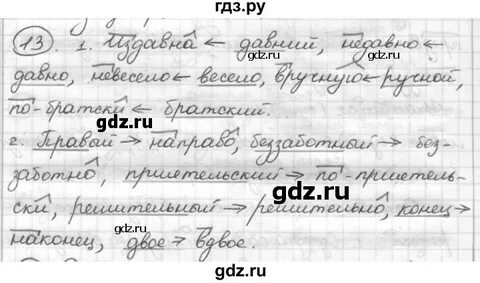 гдз.ру
13 1. Издавна ← давний, недавно ←
давно, невесело ← весело, вручную ← ручной,
по-братски ← братский.
2. Правый → направо, беззаботный → без-
заботно, приятельский → по-приятель-
ски, решительный → решительно, конец →
наконец, двое → вдвое.
gdz.ru
gdz.ru
gdz.ru
gdz.ru
gdz.ru